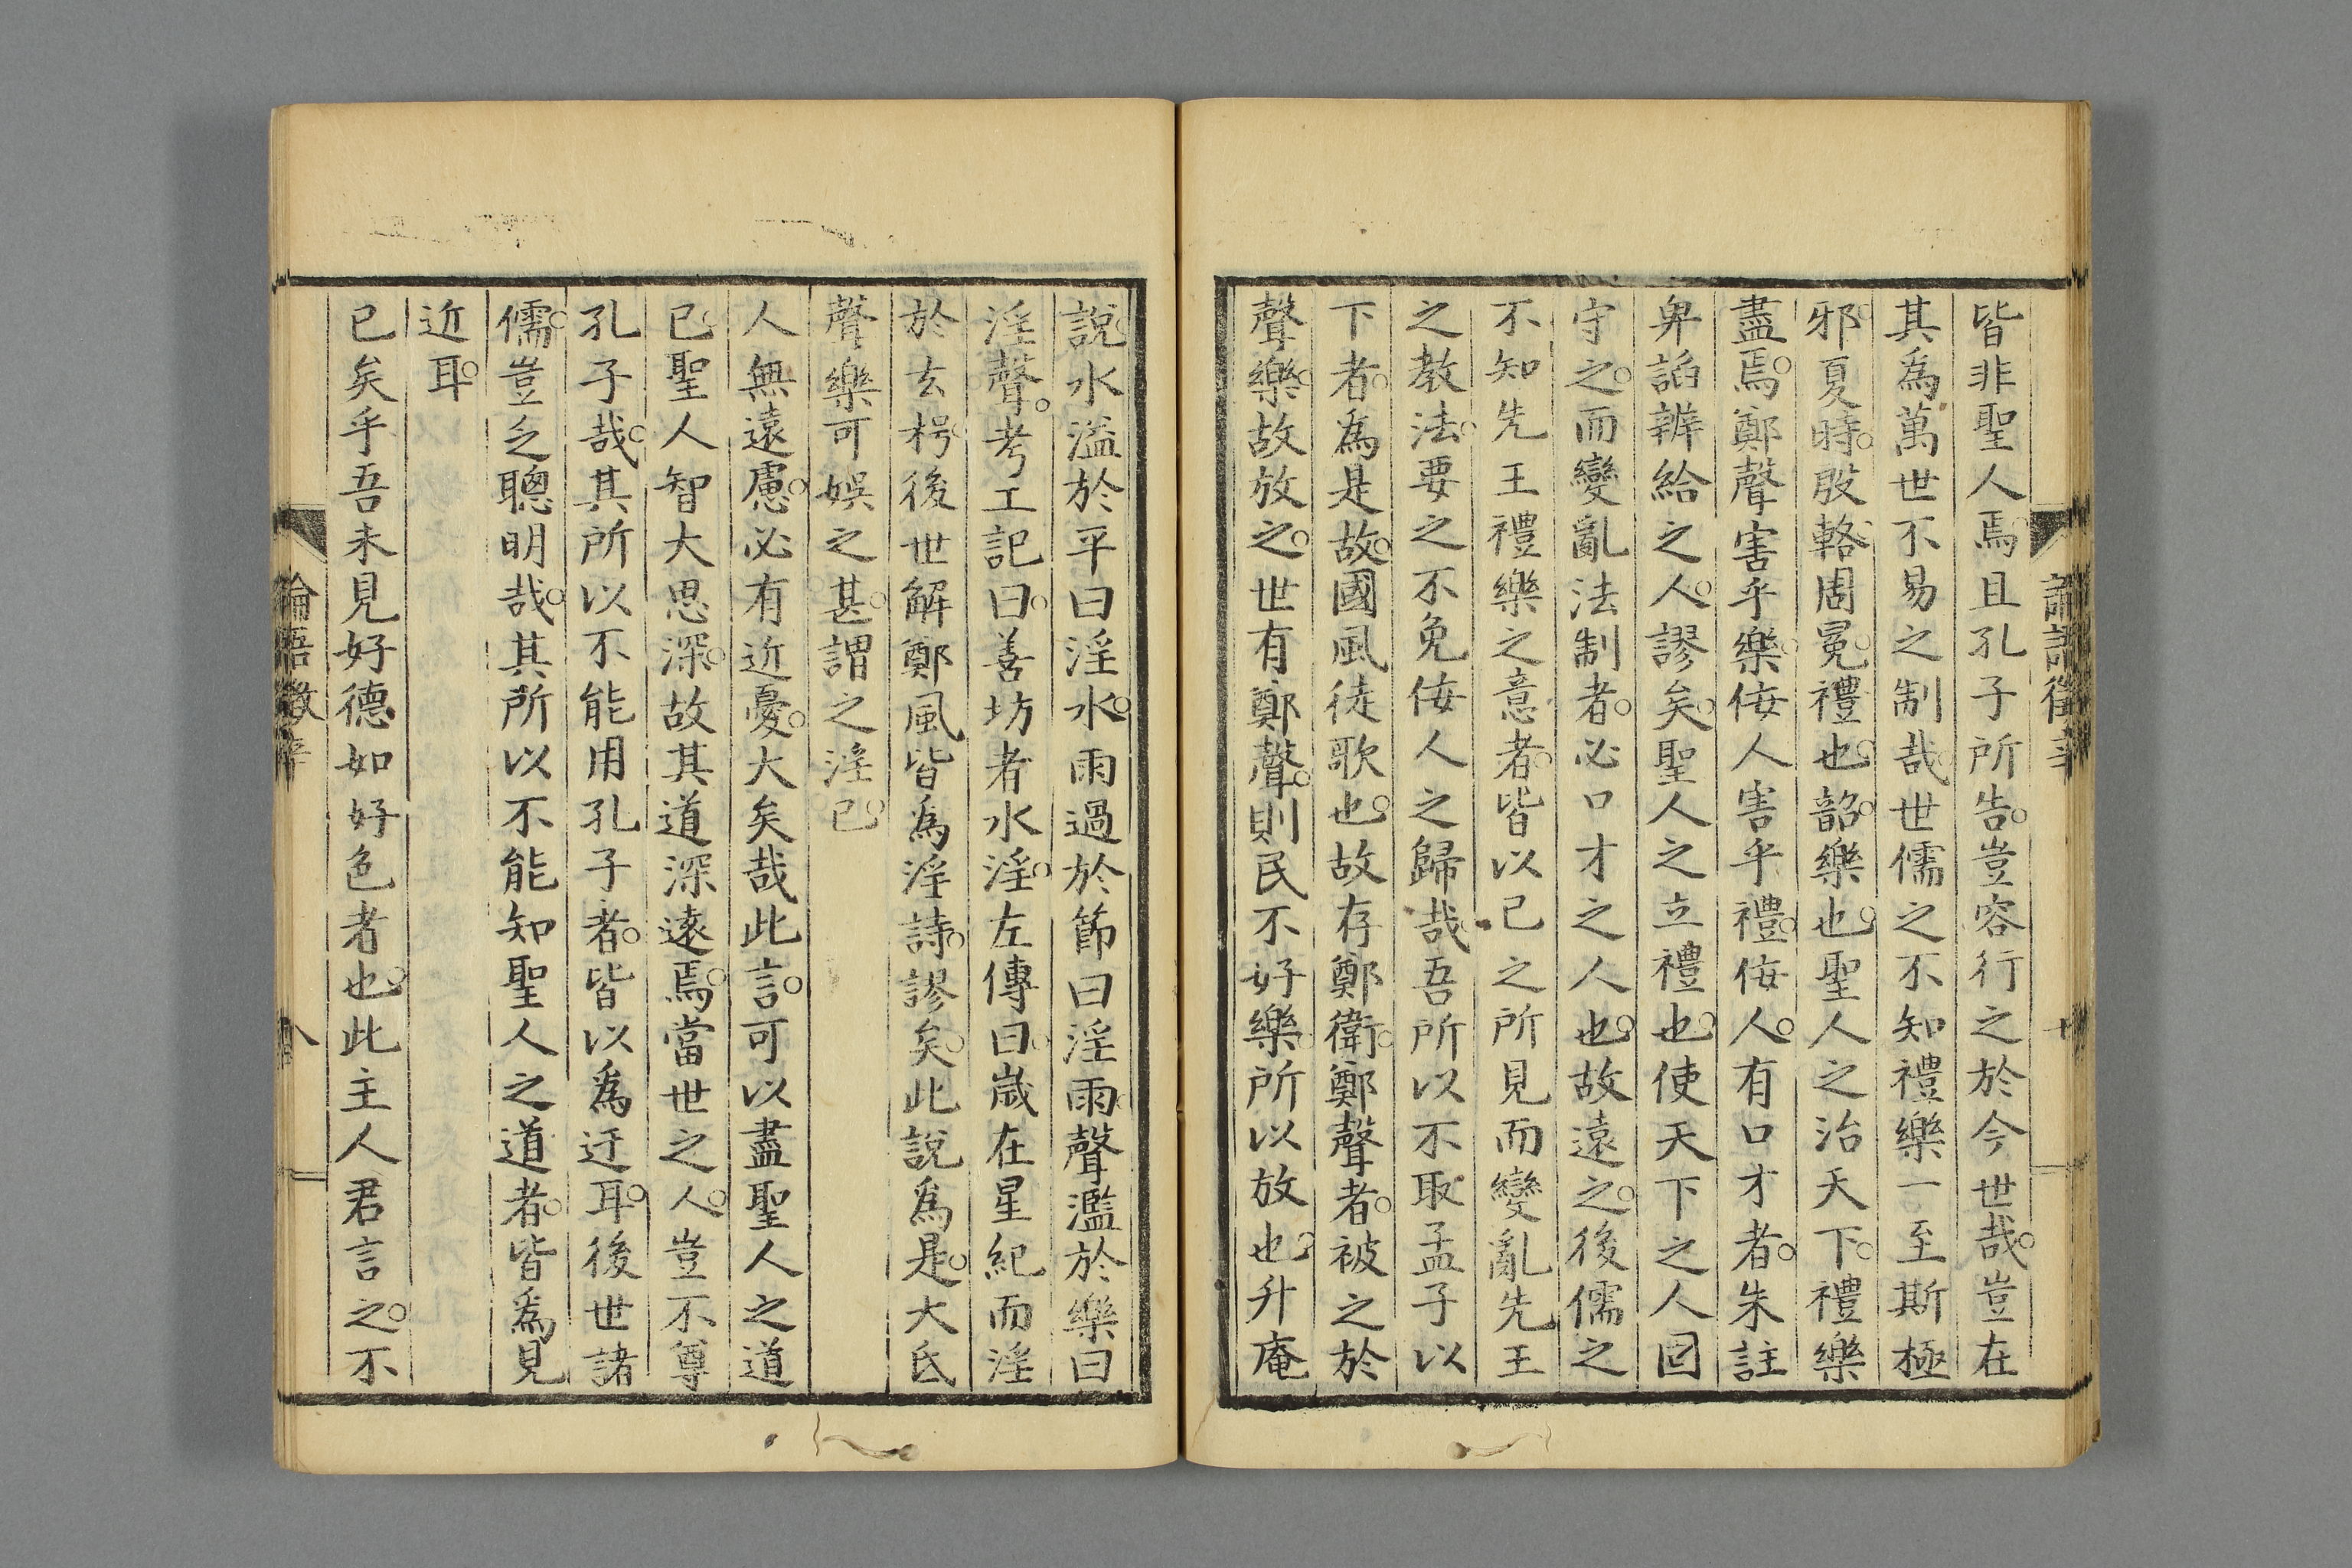 皆非聖人焉且孔子所告。豈容行之於今世哉。豈在
其爲萬世不易之制哉。世儒之不知禮樂一至斯極
邪。夏時。殷輅。周冕。禮也。韶樂也。聖人之治天下。禮樂
盡焉。鄭聲害乎樂。侫人害乎禮。侫人。有口才者。朱註
卑諂辨給之人。謬矣。聖人之立禮也。使天下之人固
守之。而變亂法制者。必口才之人也。故遠之。後儒之
不知先王禮樂之意者。皆以己之所見而變亂先王
之教法。要之不免侫人之歸哉。吾所以不取孟子以
下者。爲是故。國風徒歌也。故存鄭衛。鄭聲者。被之於
聲樂。故放之。世有鄭聲。則民不好樂。所以放也。升庵
說。水溢於平曰淫水。雨過於節曰淫雨。聲濫於樂曰
淫聲。考工記曰。善坊者水淫。左傳曰。歲在星紀而淫
於玄枵。後世解鄭風皆爲淫詩。謬矣。此說爲是。大氐
聲樂可娛之甚。謂之淫已。
人無遠慮。必有近憂。大矣哉此言。可以盡聖人之道
已。聖人智大思深。故其道深遠焉。當世之人。豈不尊
孔子哉。其所以不能用孔子者。皆以爲迂耳。後世諸
儒。豈乏聰明哉。其所以不能知聖人之道者。皆爲見
近耳。
已矣乎吾未見好德如好色者也。此主人君言之。不
論語徵
論語徵辛
八